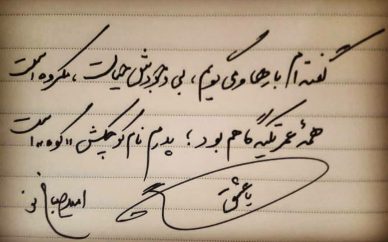 گفته‌ام بارها و می‌گویم، بی وجودش حیات، مکروه است
همهٔ عمر تکیه گاهم بود؛ پدرم نام کوچکش "کوه" است
یا عشق